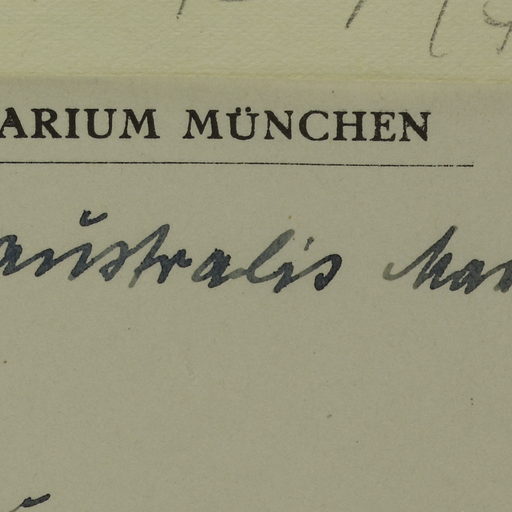 ARIUM MÜNCHEN
australis Mar